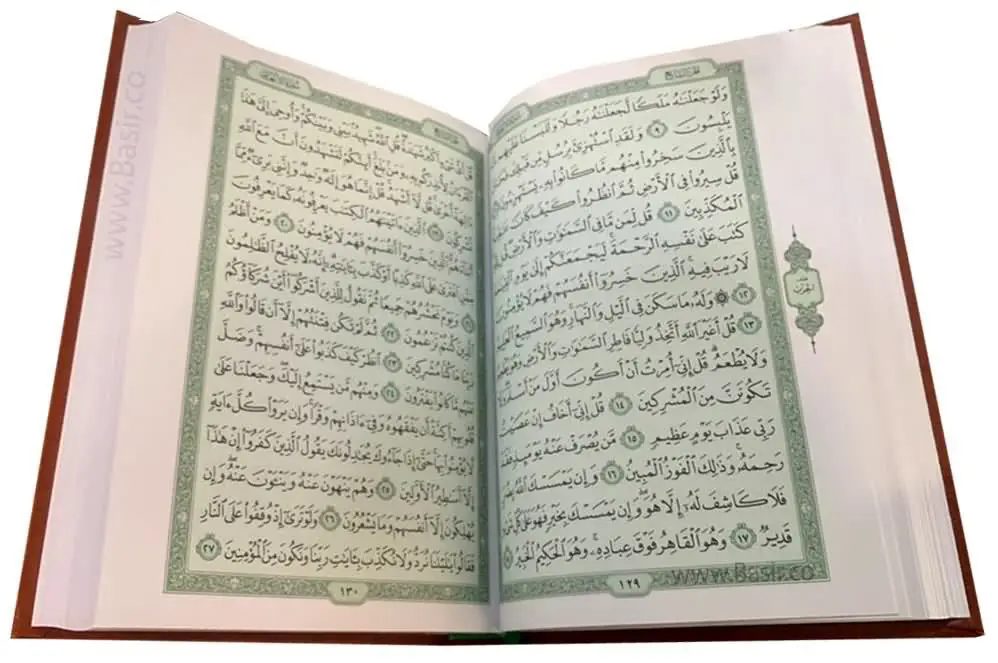 الجزء السابع
وَلَوْ جَعَلْنَٰهُ مَلَكًا لَّجَعَلْنَٰهُ رَجُلًا وَلَلَبَسْنَا عَلَيْهِم
يَلْبِسُونَ ٩ وَلَقَدِ ٱسْتُهْزِئَ بِرُسُلٍ مِّن قَبْلِكَ
بِٱلَّذِينَ سَخِرُوا۟ مِنْهُم مَّا كَانُوا۟ بِهِۦ يَسْتَهْزِءُونَ
قُلْ سِيرُوا۟ فِى ٱلْأَرْضِ ثُمَّ ٱنظُرُوا۟ كَيْفَ كَانَ
ٱلْمُكَذِّبِينَ ١١ قُل لِّمَن مَّا فِى ٱلسَّمَٰوَٰتِ وَٱلْأَرْضِ قُل
كَتَبَ عَلَىٰ نَفْسِهِ ٱلرَّحْمَةَ لَيَجْمَعَنَّكُمْ إِلَىٰ يَوْمِ
لَا رَيْبَ فِيهِ ٱلَّذِينَ خَسِرُوٓا۟ أَنفُسَهُمْ فَهُمْ لَا يُؤْمِنُونَ
١٢ ۞ وَلَهُۥ مَا سَكَنَ فِى ٱلَّيْلِ وَٱلنَّهَارِ وَهُوَ ٱلسَّمِيعُ
١٣ قُلْ أَغَيْرَ ٱللَّهِ أَتَّخِذُ وَلِيًّا فَاطِرِ ٱلسَّمَٰوَٰتِ وَٱلْأَرْضِ وَهُوَ
وَلَا يُطْعَمُ قُلْ إِنِّىٓ أُمِرْتُ أَنْ أَكُونَ أَوَّلَ مَنْ أَسْلَمَ وَلَا
تَكُونَنَّ مِنَ ٱلْمُشْرِكِينَ ١٤ قُلْ إِنِّىٓ أَخَافُ إِنْ عَصَيْتُ
رَبِّى عَذَابَ يَوْمٍ عَظِيمٍ ١٥ مَّن يُصْرَفْ عَنْهُ يَوْمَئِذٍ فَقَدْ
رَحِمَهُۥ وَذَٰلِكَ ٱلْفَوْزُ ٱلْمُبِينُ ١٦ وَإِن يَمْسَسْكَ ٱللَّهُ بِضُرٍّ
فَلَا كَاشِفَ لَهُۥٓ إِلَّا هُوَ وَإِن يَمْسَسْكَ بِخَيْرٍ فَهُوَ عَلَىٰ كُلِّ
قَدِيرٌ ١٧ وَهُوَ ٱلْقَاهِرُ فَوْقَ عِبَادِهِۦ وَهُوَ ٱلْحَكِيمُ ٱلْخَبِيرُ
١٢٩
الحزب
www.Basir.co
قُلْ أَىُّ شَىْءٍ أَكْبَرُ شَهَٰدَةً قُلِ ٱللَّهُ شَهِيدٌۢ بَيْنِى وَبَيْنَكُمْ وَأُوحِىَ إِلَىَّ هَٰذَا
لِأُنذِرَكُم بِهِۦ وَمَنۢ بَلَغَ أَئِنَّكُمْ لَتَشْهَدُونَ أَنَّ مَعَ ٱللَّهِ
أُخْرَىٰ قُل لَّآ أَشْهَدُ قُلْ إِنَّمَا هُوَ إِلَٰهٌ وَٰحِدٌ وَإِنَّنِى بَرِىٓءٌ مِّمَّا
تُشْرِكُونَ ١٩ ٱلَّذِينَ ءَاتَيْنَٰهُمُ ٱلْكِتَٰبَ يَعْرِفُونَهُۥ كَمَا يَعْرِفُونَ
أَبْنَآءَهُمُ ٱلَّذِينَ خَسِرُوٓا۟ أَنفُسَهُمْ فَهُمْ لَا يُؤْمِنُونَ ٢٠ وَمَنْ أَظْلَمُ
مِمَّنِ ٱفْتَرَىٰ عَلَى ٱللَّهِ كَذِبًا أَوْ كَذَّبَ بِـَٔايَٰتِهِۦٓ إِنَّهُۥ لَا يُفْلِحُ ٱلظَّٰلِمُونَ
وَيَوْمَ نَحْشُرُهُمْ جَمِيعًا ثُمَّ نَقُولُ لِلَّذِينَ أَشْرَكُوٓا۟ أَيْنَ شُرَكَآؤُكُمُ
ٱلَّذِينَ كُنتُمْ تَزْعُمُونَ ٢٢ ثُمَّ لَمْ تَكُن فِتْنَتُهُمْ إِلَّآ أَن قَالُوا۟ وَٱللَّهِ
رَبِّنَا مَا كُنَّا مُشْرِكِينَ ٢٣ ٱنظُرْ كَيْفَ كَذَبُوا۟ عَلَىٰٓ أَنفُسِهِمْ وَضَلَّ
عَنْهُم مَّا كَانُوا۟ يَفْتَرُونَ ٢٤ وَمِنْهُم مَّن يَسْتَمِعُ إِلَيْكَ وَجَعَلْنَا عَلَىٰ
قُلُوبِهِمْ أَكِنَّةً أَن يَفْقَهُوهُ وَفِىٓ ءَاذَانِهِمْ وَقْرًا وَإِن يَرَوْا۟ كُلَّ ءَايَةٍ
لَّا يُؤْمِنُوا۟ بِهَا حَتَّىٰٓ إِذَا جَآءُوكَ يُجَٰدِلُونَكَ يَقُولُ ٱلَّذِينَ كَفَرُوٓا۟ إِنْ هَٰذَآ
إِلَّآ أَسَٰطِيرُ ٱلْأَوَّلِينَ ٢٥ وَهُمْ يَنْهَوْنَ عَنْهُ وَيَنْـَٔوْنَ عَنْهُ وَإِن
يُهْلِكُونَ إِلَّآ أَنفُسَهُمْ وَمَا يَشْعُرُونَ ٢٦ وَلَوْ تَرَىٰٓ إِذْ وُقِفُوا۟ عَلَى ٱلنَّارِ
فَقَالُوا۟ يَٰلَيْتَنَا نُرَدُّ وَلَا نُكَذِّبَ بِـَٔايَٰتِ رَبِّنَا وَنَكُونَ مِنَ ٱلْمُؤْمِنِينَ ٢٧
١٣٠
www.Basir.co